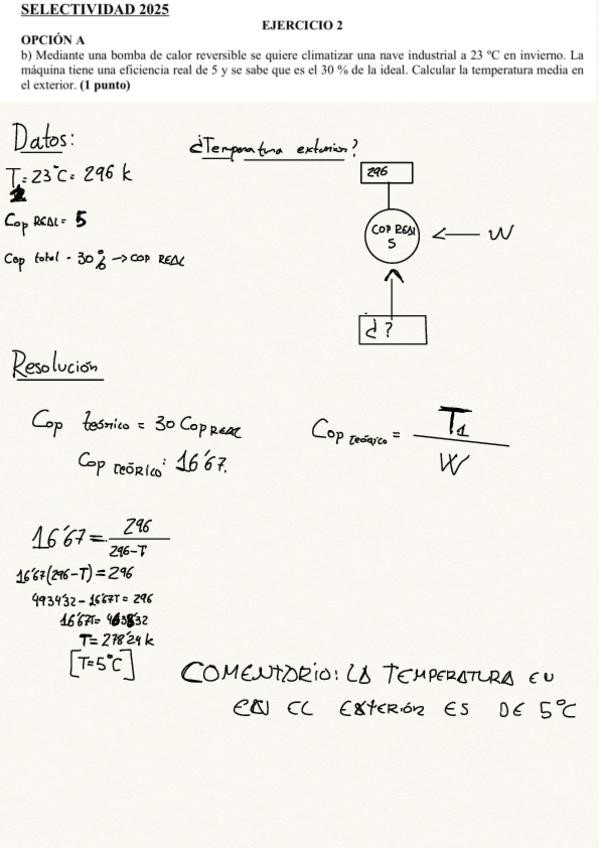 SELECTIVIDAD 2025
EJERCICIO 2
OPCIÓN A
b) Mediante una bomba de calor reversible se quiere climatizar una nave industrial a 23 ºC en invierno. La
máquina tiene una eficiencia real de 5 y se sabe que es el 30 % de la ideal. Calcular la temperatura media en
el exterior. (1 punto)
Datos:
¿Temperatura exterior?
T1=23°C= 296 k
296
Cop REAL= 5
COP REAL
5
← W
Cop total - 30% → COP REAL
¿?
Resolución
Cop teórico = 30 Cop REAL
Cop teórico = T1
W
Cop teórico: 16'67.
16'67 = 296
296-T
16'67(296-T) = 296
4934'32 - 16'67T = 296
16'67T= 4638'32
T= 278'24 k
[T=5°C]
COMENTARIO: LA TEMPERATURA EN
EN EL EXTERIOR ES DE 5°C